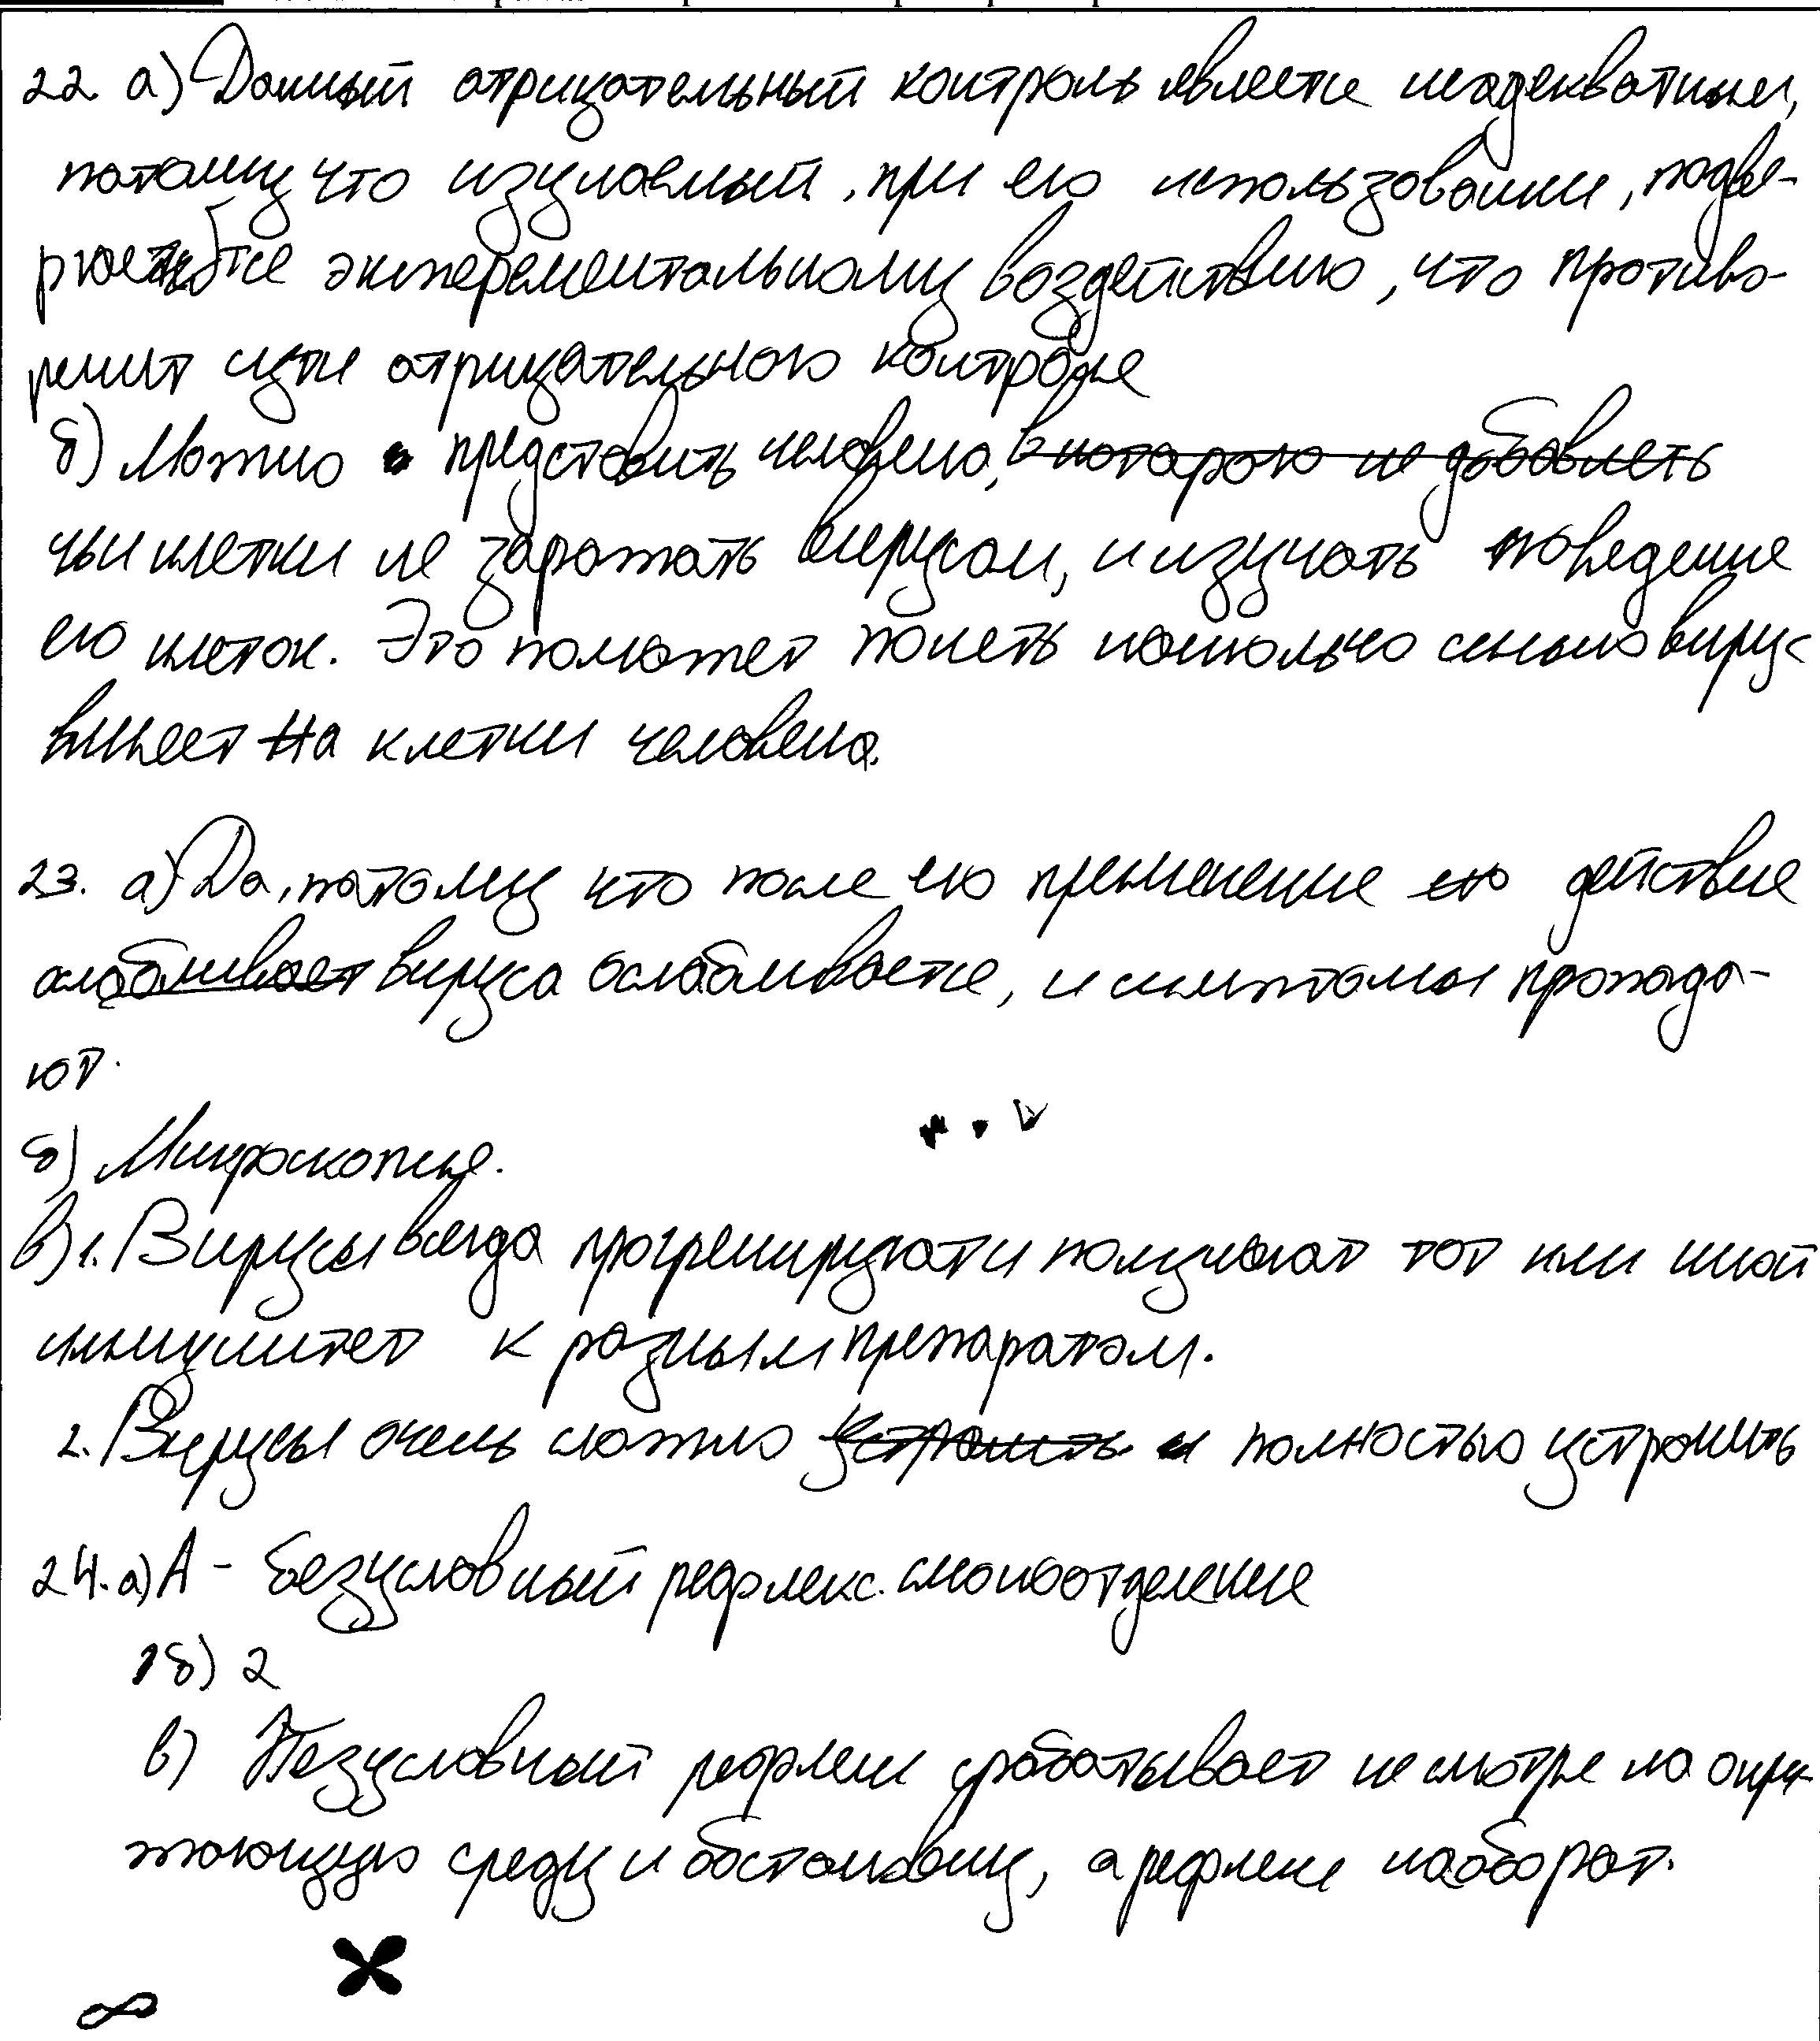 22 а) Данный отрицательный контроль является неадекватным,
потому что изучаемый, при его использовании, подве-
ргается экспериментальному воздействию, что противо-
речит сути отрицательного контроля
б) Можно представить человека, в которого не добавлять
чьи клетки не заражать вирусом, и изучать поведение
его клеток. Это поможет понять насколько сильно вирус
влияет на клетки человека.
23. а) Да, потому что после его применение его действие
ослабливает вируса ослабливается, и симптомы пропада-
ют.
б) Микроскопия.
в) 1. Вирусы всегда прогрессируют и получают тот или иной
иммунитет к разным препаратам.
2. Вирусы очень сложно устранить и полностью устранить
24. а) А - безусловный рефлекс. слюноотделение
б) 2
в) Безусловный рефлекс срабатывает не смотря на окру-
жающую среду и обстановку, а рефлекс наоборот.